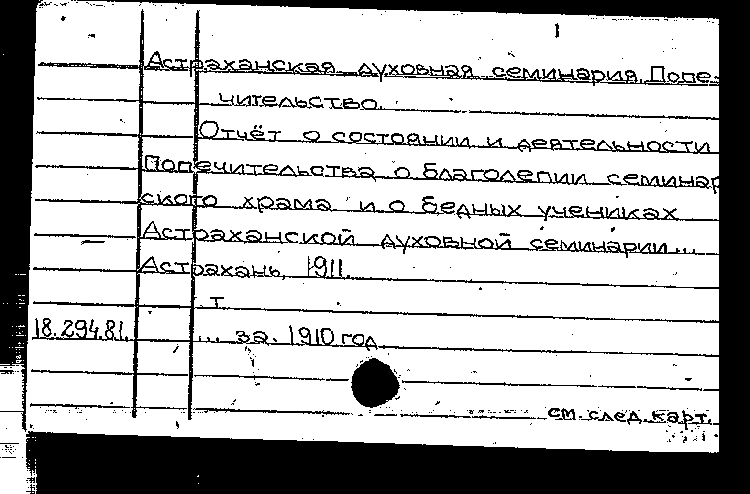 Астраханская духовная семинария. Попе-
чительство.
Отчёт о состоянии и деятельности
Попечительства о благолепии семинар
ского храма и о бедных учениках
Астраханской духовной семинарии...
Астрахань, 1911.
т
18.294.81. ... за 1910 год.
см. след. карт.